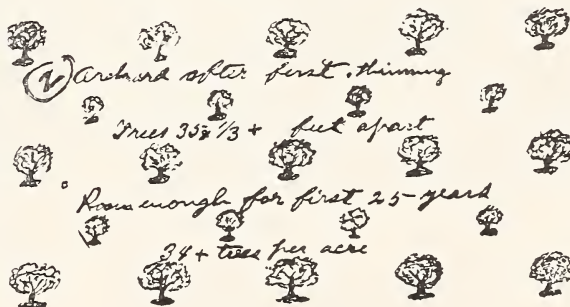 ② Orchard after first thinning
Trees 35 1/3 + feet apart
Room enough for first 25 years
34 + trees per acre